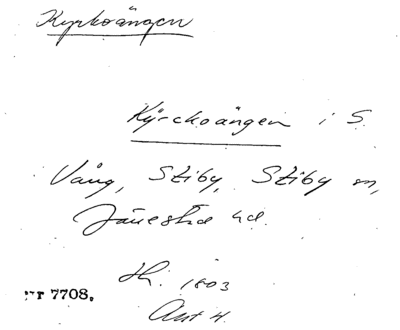 Kyrkoängen
Kyrckoängen i S.
Vång, Stiby, Stiby sn,
Järrestad hd.
Lh. 1803
Akt 4.
nr 7708.